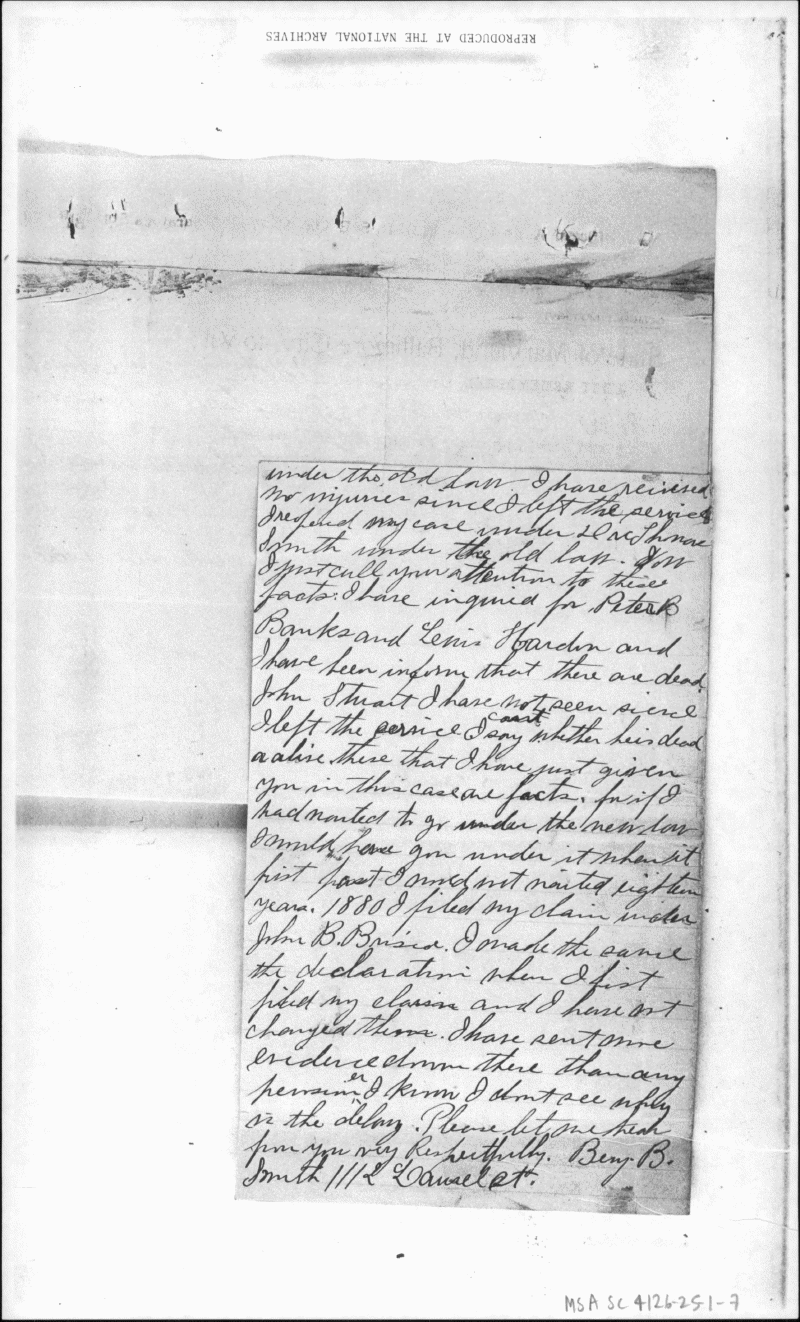 REPRODUCED AT THE NATIONAL ARCHIVES
under the old law. I have reicived
no injuries since I left the service
I reopend my case under
Smith under the old law. Now
I just call your attention to these
facts: I have inquired for Peter B
Banks and Lewis Hardon and
I have been inform that there are dead.
John Stuart I have not seen sience
I left the service I cant say whether he is dead
or alive these that I have just given
you in this case are facts. for if I
had wanted to go under the new law
I would have gon under it when it
first past I would not waited eighteen
years. 1880 I filed my claim under
John B. I made the same
the declaration when I first
filed my claim and I have not
changed them. I have sent more
evidence down there than any
pensioner I know I dont see why
is the delay. Please let me hear
from you very Respectfully. Benj. B.
Smith 1112 st.
MSA SC 4126-251-7